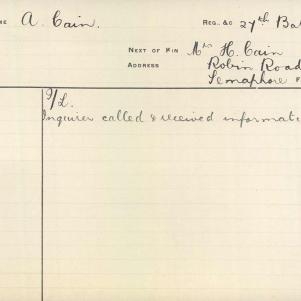 ME A. Cain. REG. &C 27th Bat
NEXT OF KIN Mrs H. Cain
ADDRESS Robin Road
Semaphore
I/L.
Inquirer called & received informati